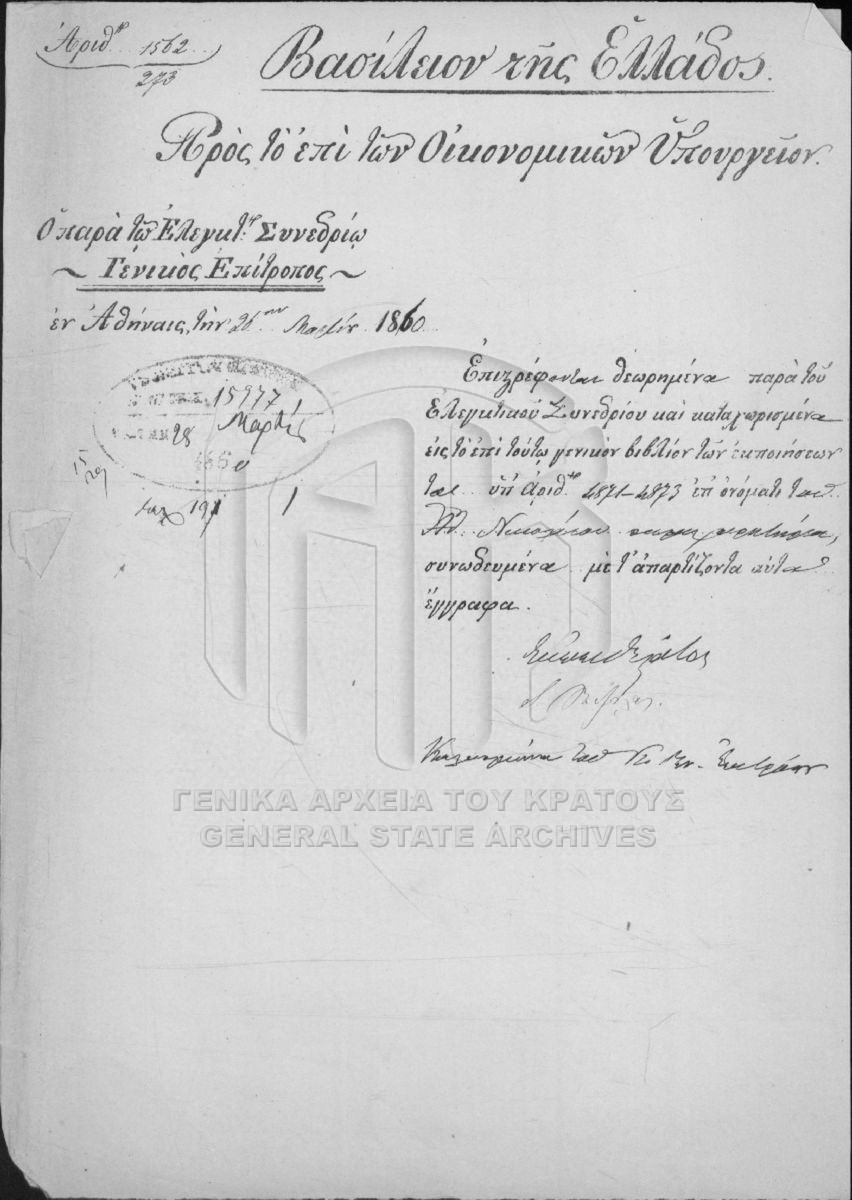 Ἀριθ. 1562
273
Βασίλειον τῆς Ἑλλάδος.
Πρὸς τὸ ἐπὶ τῶν Οἰκονομικῶν Ὑπουργεῖον.
Ὁ παρὰ τῷ Ἐλεγκτ. Συνεδρίῳ
Γενικὸς Ἐπίτροπος
ἐν Ἀθήναις, τὴν 26 Μαρτίου 1860
Ἐπιστρέφονται θεωρημένα παρὰ τοῦ
Ἐλεγκτικοῦ Συνεδρίου καὶ καταχωρισμένα
εἰς τὸ ἐπὶ τούτῳ γενικὸν βιβλίον τῶν ἐκποιήσεων
τὰ ὑπ' ἀριθ. 4871-4873 ἐπ' ὀνόματι τοῦ
Νικολάου
συνωδευμένα μὲ τ' ἀπαρτίζοντα αὐτὰ
ἔγγραφα.
15977
28 Μαρτίου
1860
15
191 1
ΓΕΝΙΚΑ ΑΡΧΕΙΑ ΤΟΥ ΚΡΑΤΟΥΣ
GENERAL STATE ARCHIVES